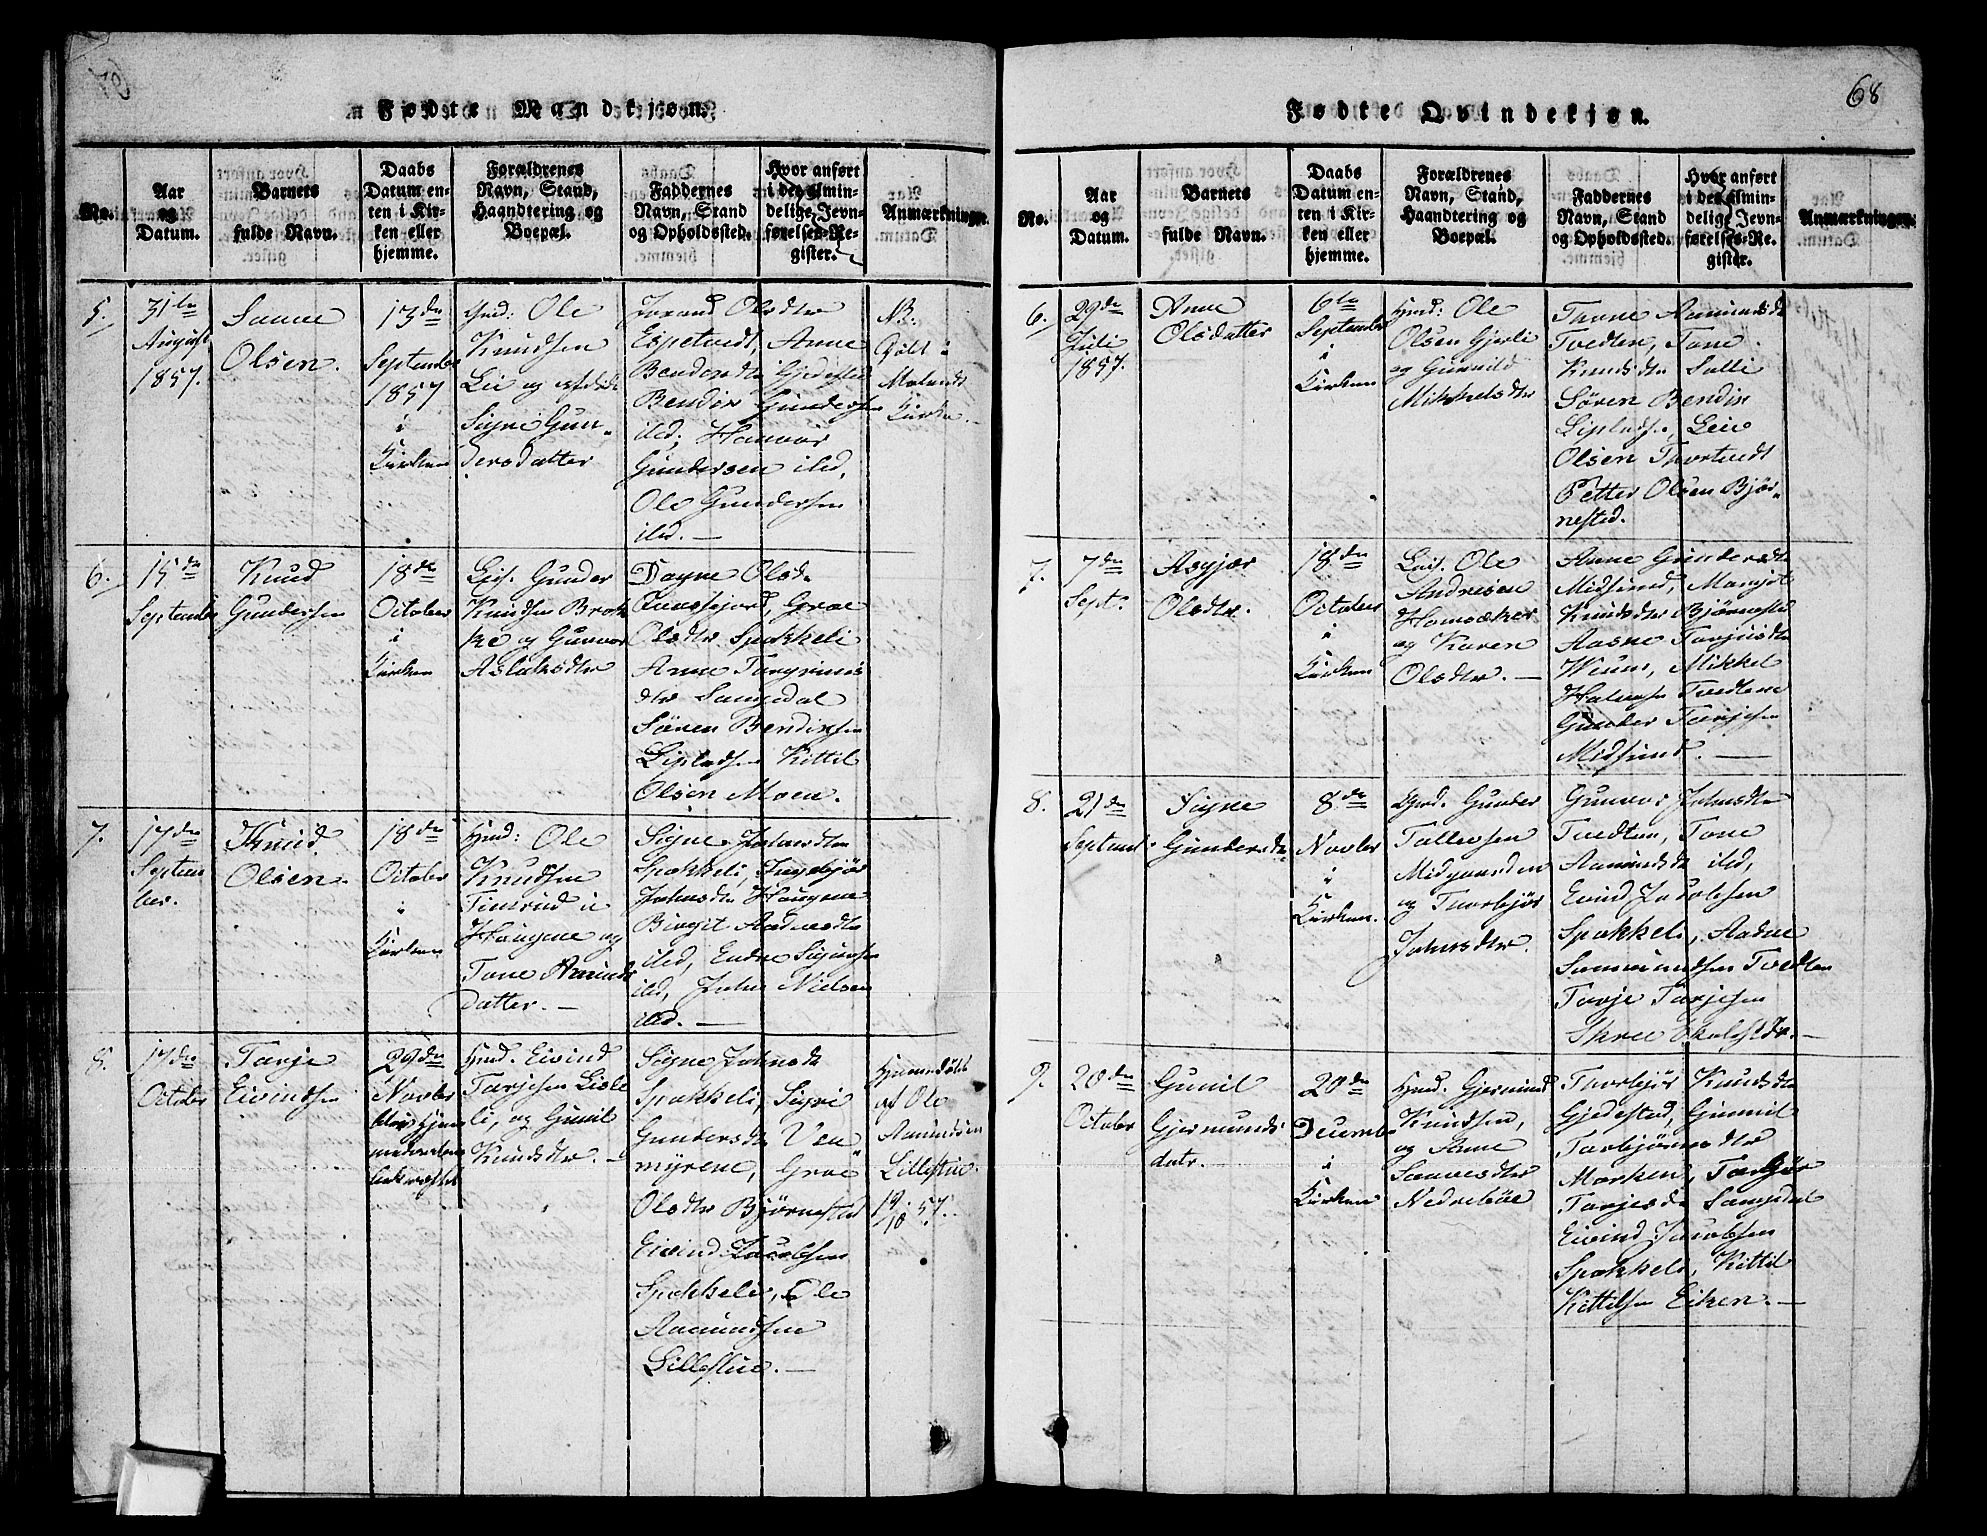 68
Fødte Mandkjøn.
No.
Aar
og
Datum.
Barnets
fulde Navn.
Daabs
Datum en-
ten i Kir-
ken eller
hjemme.
Forældrenes
Navn, Stand,
Haandtering og
Boepæl.
Faddernes
Navn, Stand
og Opholdssted.
Hvor anført
i det almin-
delige Jevn-
førelses-Re-
gister.
Anmærkninger.
5.
31te
August
1857.
Olsen.
13de
September
1857
i
Kirken
Gmd: Ole
Knudsen
Lie og
Signe Gun-
dersdatter
Jorand Olsdtr
Espetvedt, Anne
Bendixdtr Gjedested
Bendix Gundersen
ibd; Hanvor
Gundersen ibd,
Ole Gundersen
ibd. —
NB.
Dölt i
Molands
Kirke.
6.
15de
September
Knud
Gundersen
18de
October
i
Kirken
Leis. Gunder
Knudsen Brok-
ke og Gunvor
Aslaksdtr
Dagne Olsd.
Groe
Olsdtr Spokkeli
Anne Targrims
dtr Langedal
Sören Bendixsen
Kittil
Olsen Moen.
7.
17de
Septem
ber.
Knud
Olsen.
18de
October
i
Kirken
Hmd: Ole
Knudsen
Timrud i
Haugene og
Tone Amunds
datter. —
Signe Johnsdtr
Spokkeli, Ingebjør
Johnsdtr Haugene
Birgit Andersdtr
ibd, Endre Sigursen
ibd, John Nielsen
ibd. —
8.
17de
October
Tarje
Eivindsen
29de
Novbr
Hmd. Eivind
Tarjesen Lisle
li, og Gunil
Knudsdtr. —
Signe Johnsdtr
Spokkeli, Sigri
Gundersdtr Ven
myrene, Groe
Olsdtr Bjørnestad
Eivind Jacobsen
Spokkeli, Ole
Aamundsen
Lillestue. —
Hjemmedöbt
af Ole
Aamundsen
Lillestue
19/10 57.
Fødte Qvindekjøn.
No.
Aar
og
Datum.
Barnets
fulde Navn.
Daabs
Datum en-
ten i Kir-
ken eller
hjemme.
Forældrenes
Navn, Stand,
Haandtering og
Boepæl.
Faddernes
Navn, Stand
og Opholdssted.
Hvor anført
i det almin-
delige Jevn-
førelses-Re-
gister.
Anmærkninger.
6.
29de
Juli
1857.
Anne
Olsdatter
6te
September
i
Kirken
Hmd: Ole
Olsen Gjerli
og Gunvild
Mikkelsdtr
Thone Aamundsdtr
Tvedten, Tone
Knudsdtr Solli
Sören Bendix
Leie
Olsen Thortvedt
Petter Olsen Bjør-
nested.
7.
7de
Septr.
Asgjær
Olsdtr.
18de
October
i
Kirken
Leis. Ole
Andresen
Homsaker
og Karen
Olsdtr. —
Anne Gundersdtr
Midsund, Margit
Knudsdtr Bjørnested
Aasne Tarjusdtr
Weum, Mikkel
Halvorsen Tvedtene
Gunder Tarjesen
Midsund. —
8.
21de
Septembr
Signe
Gundersdtr
8de
Novbr
i
Kirken.
Gmd. Gunder
Tallevsen
Midgaarden
og Thorbjør
Johnsdtr.
Gunvor Johnsdtr
Tvedten, Tone
Aamundsdtr ibd,
Eivind Jacobsen
Spokkeli, Aadne
Aamundsen Tvedten
Tarje Tarjesen
Skree Skolehldr. —
9.
20de
October
Gunil
Gjermunds
datr.
20de
Decembr
i
Kirken
Hmd. Gjermund
Knudsen,
og Anne
Saavesdtr
Nedrebøe
Thorbjør Knudsdtr
Gjedested, Gunnil
Torbjørnsdtr
Morken, Torbjør
Tarjesdtr Langedal
Eivind Jacobsen
Spokkeli, Kittil
Kittilsen Eiken. —